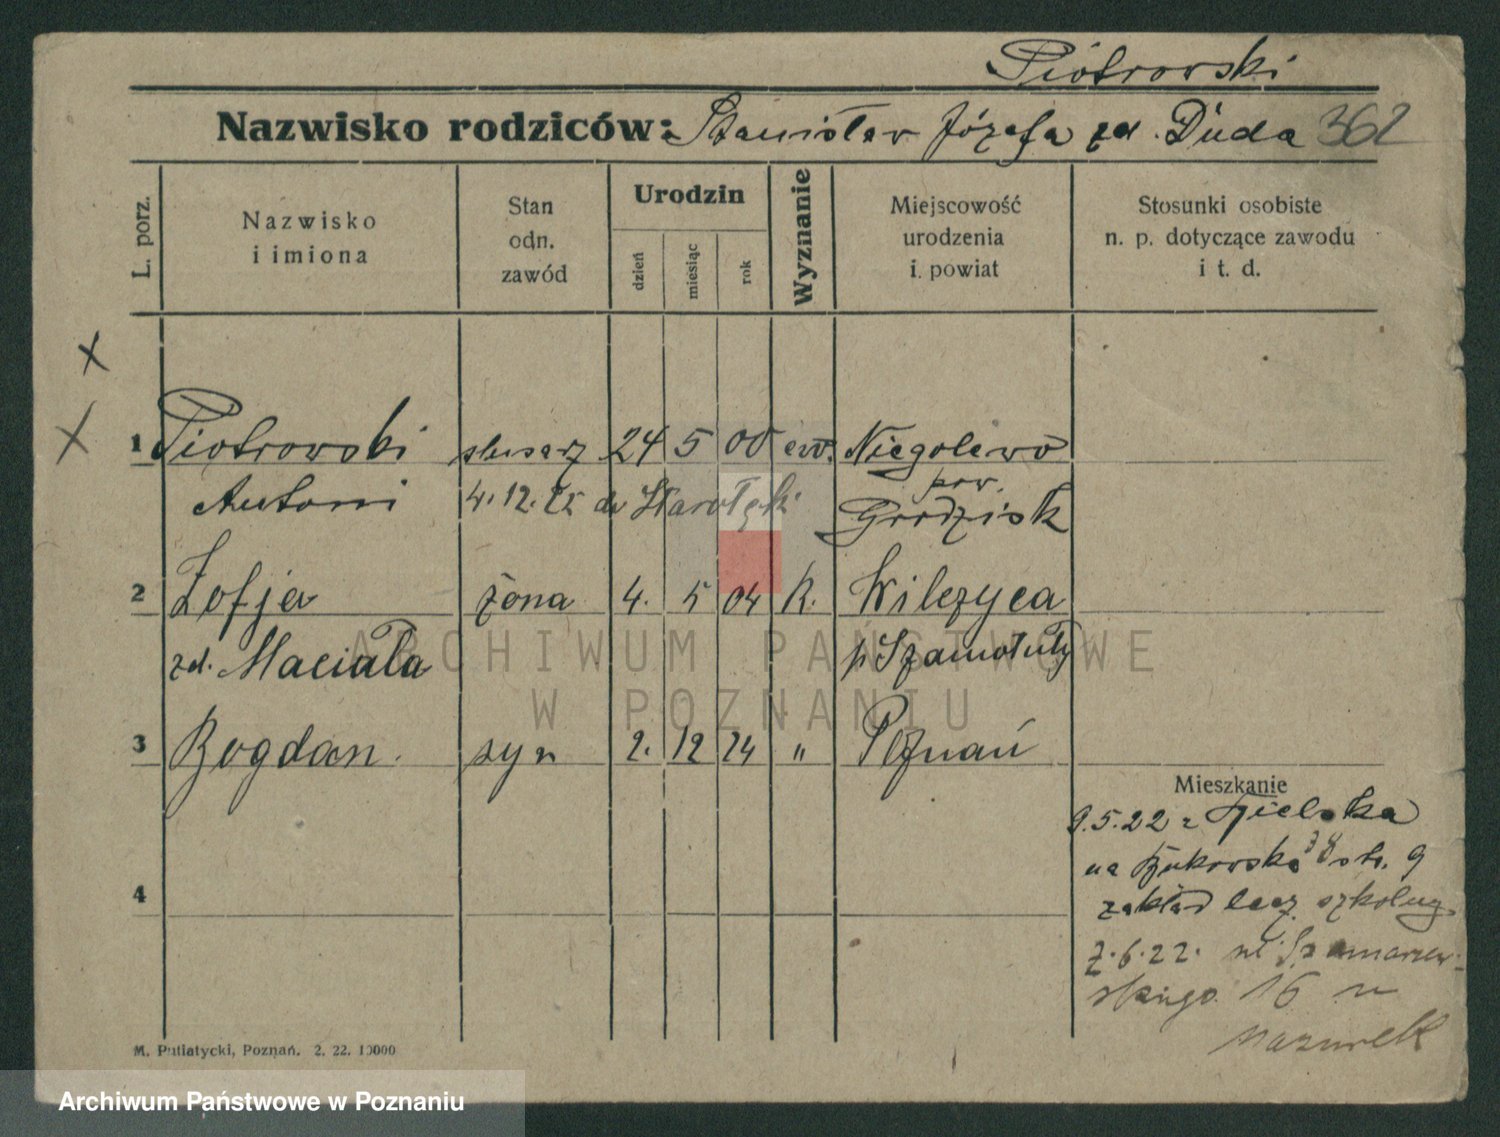 Piotrowski
Nazwisko rodziców: Stanisław Józefa zd. Duda 362
L. porz.
Nazwisko
i imiona
Stan
odn.
zawód
Urodzin
dzień
miesiąc
rok
Wyznanie
Miejscowość
urodzenia
i powiat
Stosunki osobiste
n. p. dotyczące zawodu
i t. d.
1 Piotrowski ślusarz 24 5 00 ew. Niegolewo
pow.
Antoni 4. 12. 25 do Starołęki Grodzisk
2 Zofja żona 4. 5 04 R. Wilczyca
zd. Maciała p Szamotuły
3 Bogdan. syn 2. 12 24 " Poznań
Mieszkanie
9.5.22 z
na Bukowska 38 st. 9
4
zakład lecz.
2.6.22. ul Szamarzew-
skiego 16 u
Mazurek
M. Putiatycki, Poznań. 2. 22. 10000
ARCHIWUM PAŃSTWOWE
W POZNANIU
Archiwum Państwowe w Poznaniu